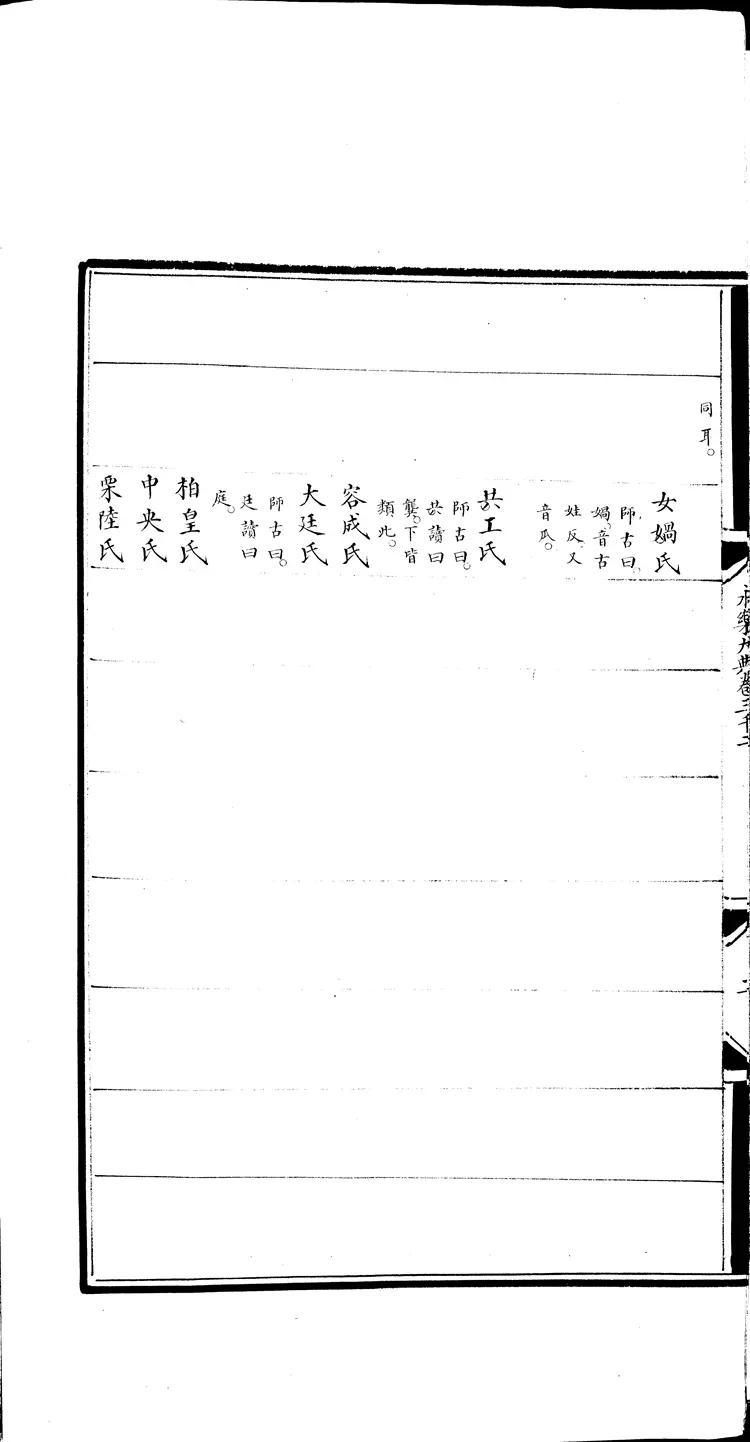 同耳。
女媧氏
師古曰。
媧。音古
娃反。又
音瓜。
共工氏
師古曰。
共讀曰
龔。下皆
類此。
容成氏
大廷氏
師古曰。
廷讀曰
庭。
柏皇氏
中央氏
栗陸氏
永樂大典卷三千二